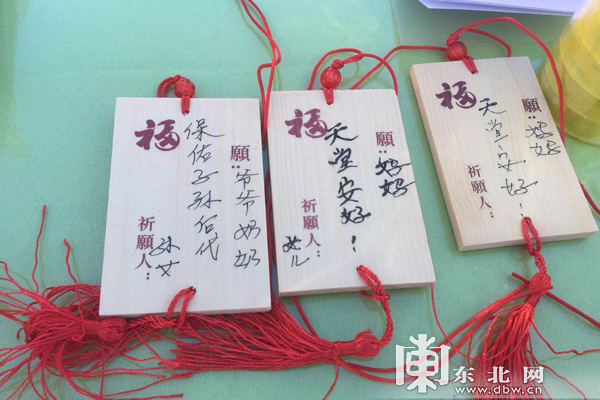 福
願：爷爷奶奶
保佑子孙后代
祈願人：
孙女
福
願：妈妈
天堂安好！
祈願人：
女儿
福
願：妈妈
天堂安好！
祈願人：
東 东北网
www.dbw.cn